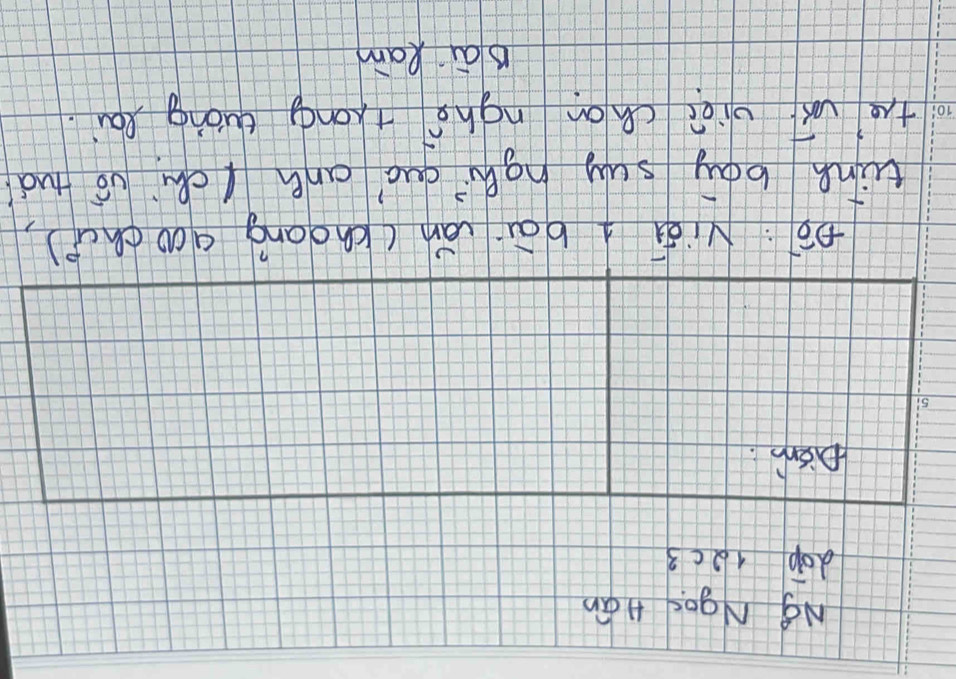 Ng Ngọc Hân
Lớp 12c3
Điểm:
Đề: Viết 1 bài văn (khoảng 600 chữ),
trình bày suy nghĩ của anh / chị về tuổi
trẻ với việc chọn nghề trong tương lai.
Bài làm
5
10